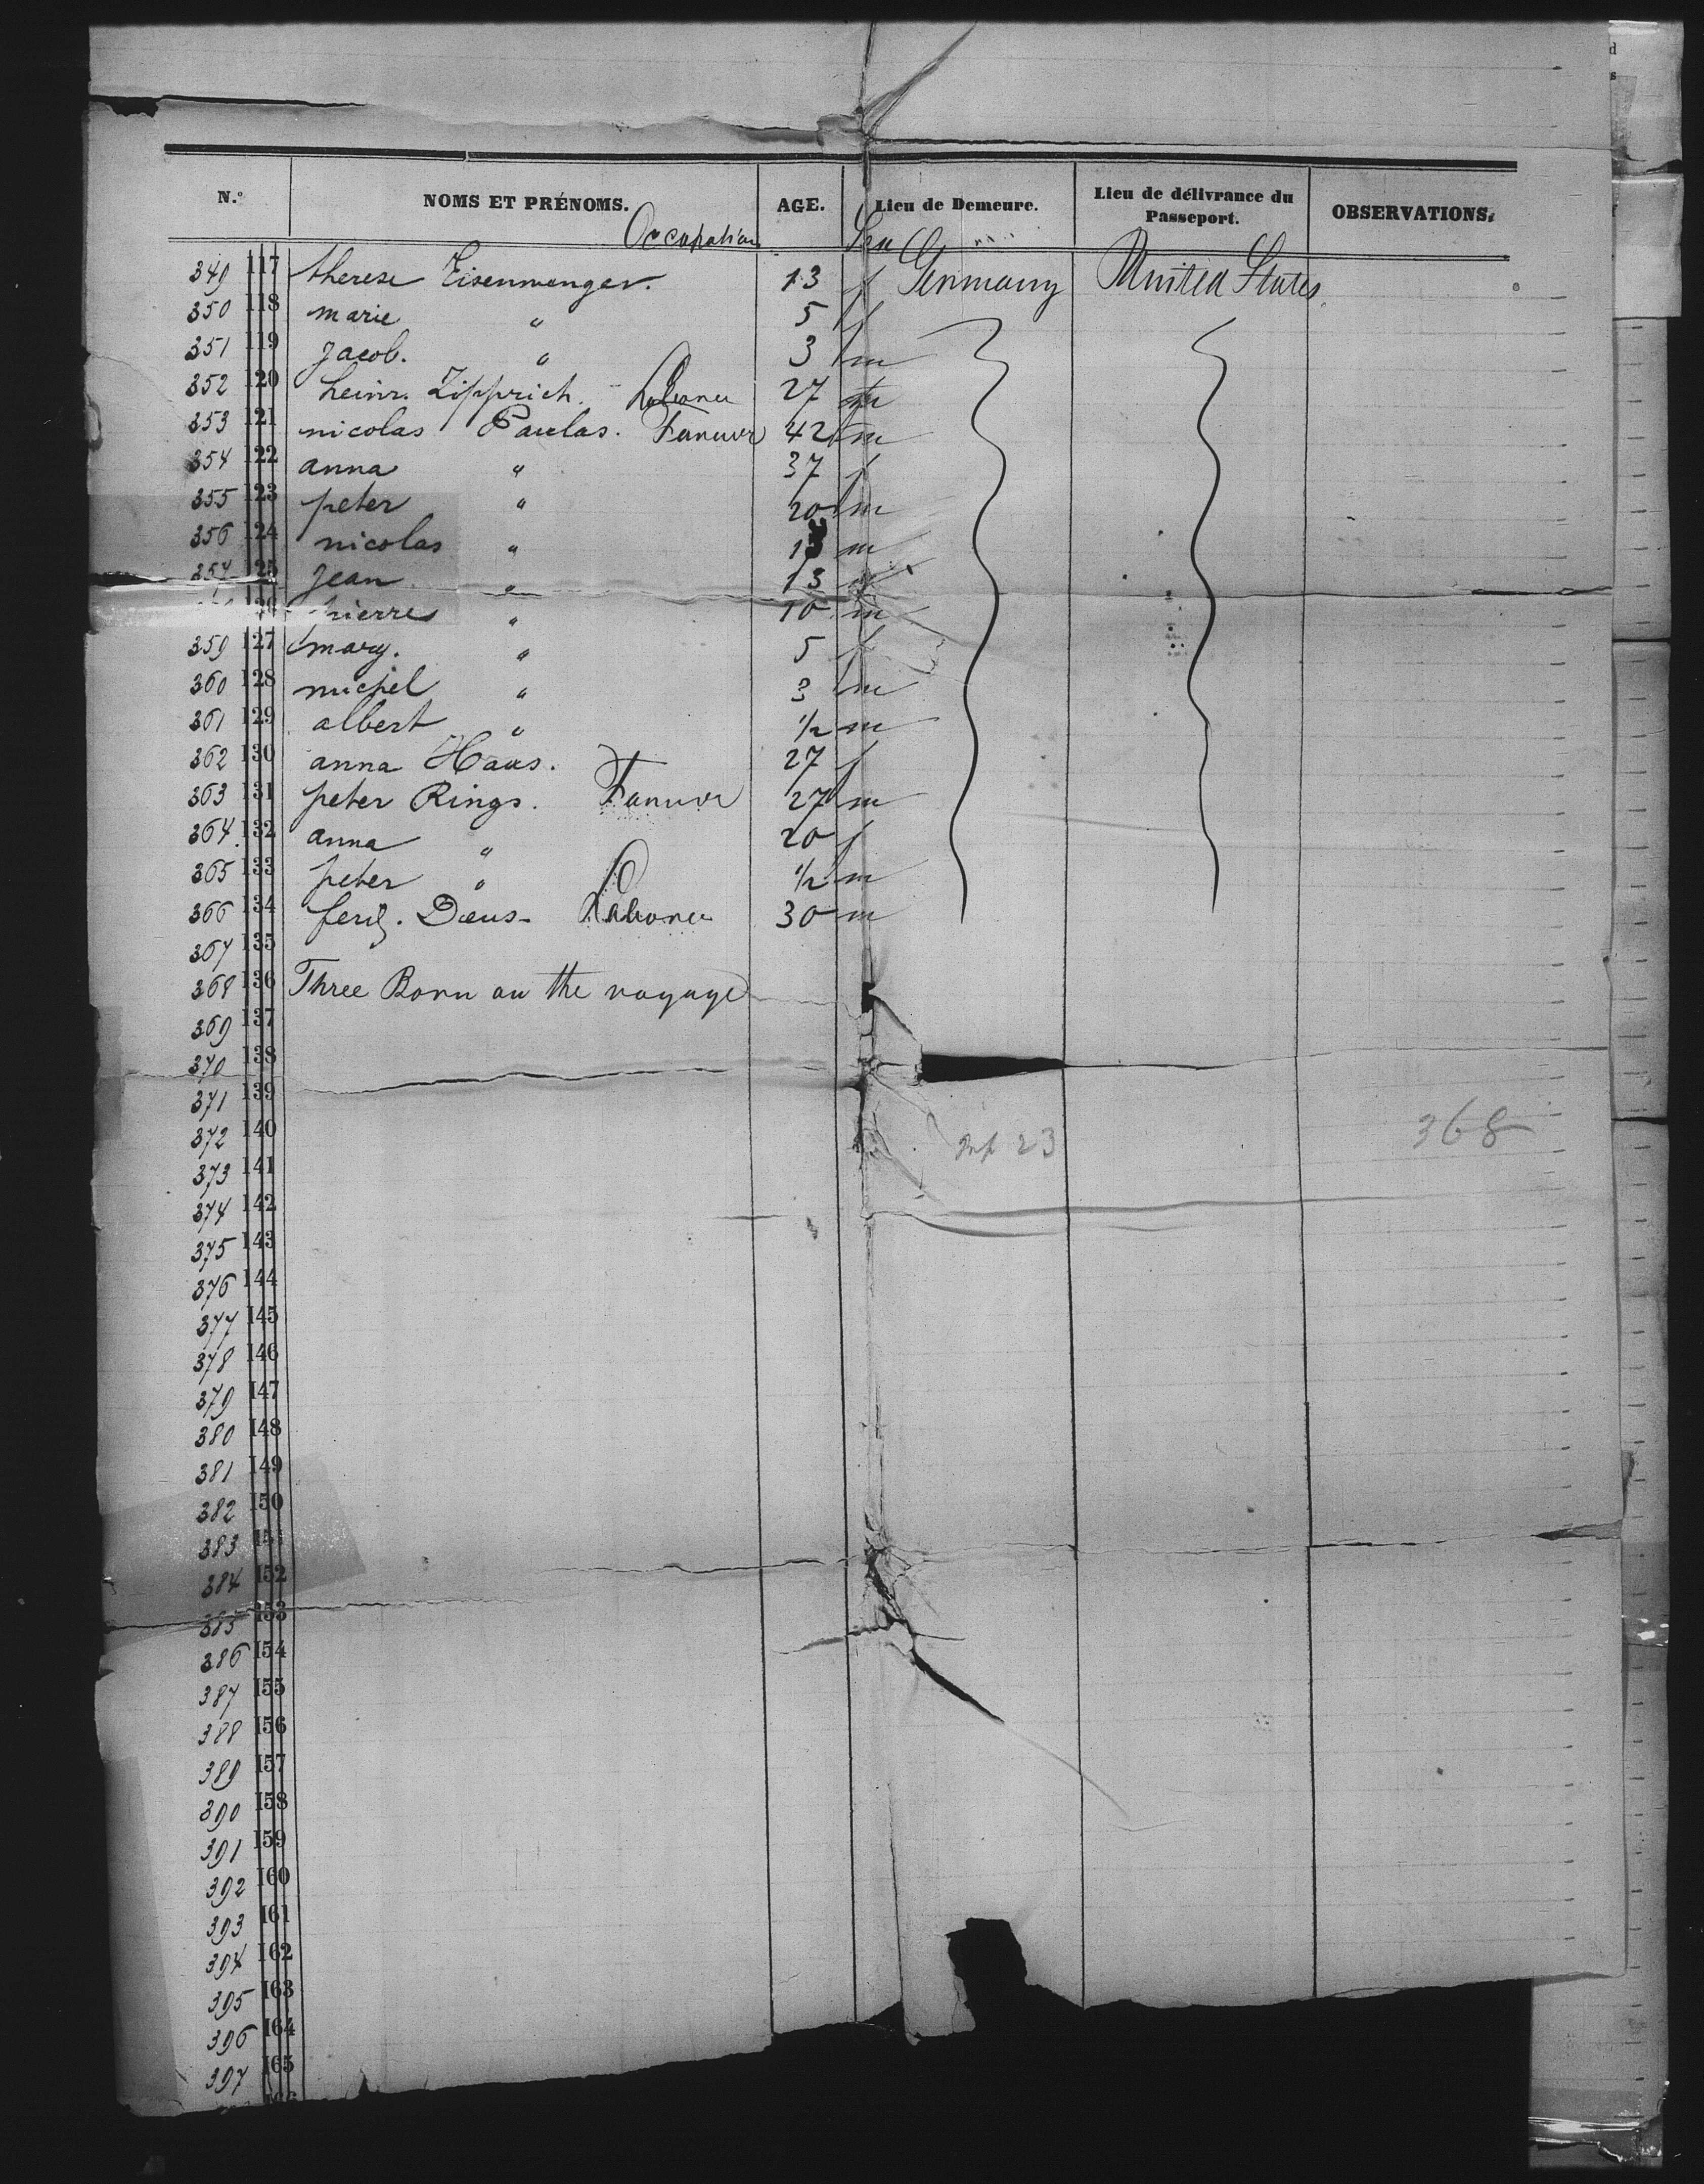 N.º NOMS ET PRÉNOMS. AGE. Lieu de Demeure. Lieu de délivrance du Passeport. OBSERVATIONS.
Occupation Sex
349 117 therese Eisenmenger. 13 f Germany United States
350 118 marie " 5 f
351 119 Jacob. " 3 m
352 120 heinr. Zipprich. Laborer 27 m
353 121 nicolas Paulas. Farmer 42 m
354 122 anna " 37 f
355 123 peter " 20 m
356 124 nicolas " m
357 125 Jean " 13
126 pierre " 10 m
359 127 mary. " 5 f
360 128 michel " 3 m
361 129 albert " 1/2 m
362 130 anna Haas. 27 f
363 131 peter Rings. Farmer 27 m
364 132 anna " 20 f
365 133 peter " 1/2 m
366 134 ferd. Daus Laborer 30 m
367 135
368 136 Three Born on the voyage
369 137
370 138
371 139
372 140 23 368
373 141
374 142
375 143
376 144
377 145
378 146
379 147
380 148
381 149
382 150
383 151
384 152
385 153
386 154
387 155
388 156
389 157
390 158
391 159
392 160
393 161
394 162
395 163
396 164
397 165